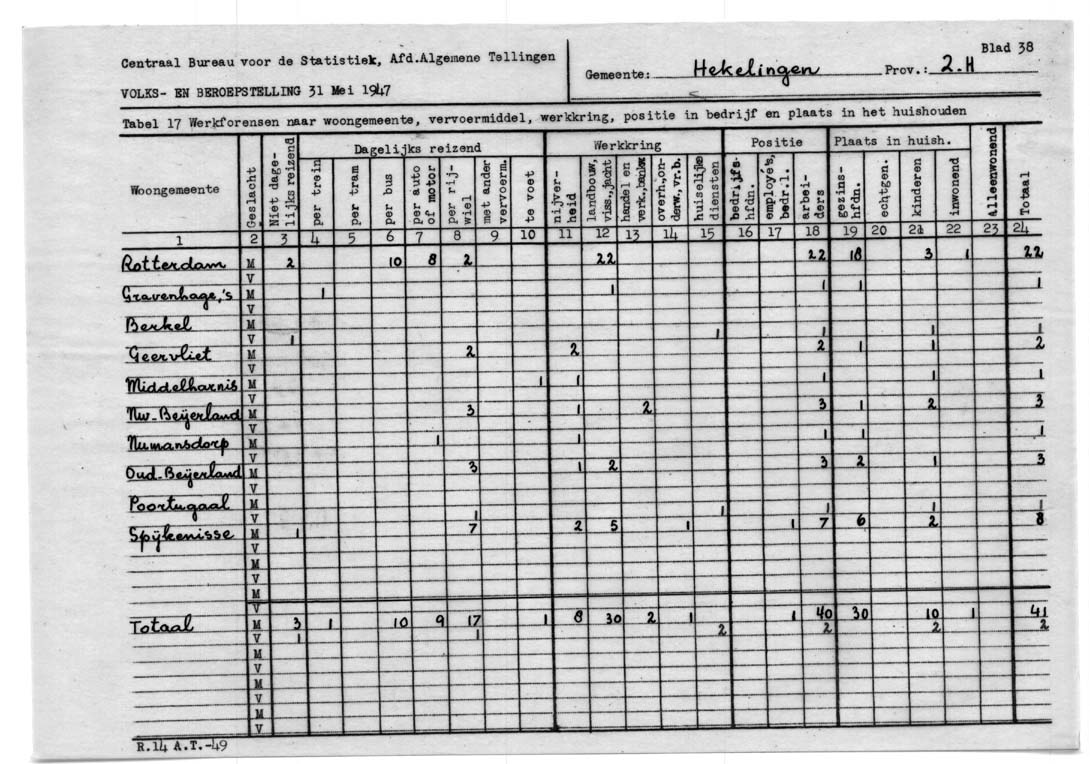 Centraal Bureau voor de Statistiek, Afd.Algemene Tellingen
VOLKS- EN BEROEPSTELLING 31 Mei 1947
Gemeente: Hekelingen Prov.: Z.H
Blad 38
Tabel 17 Werkforensen naar woongemeente, vervoermiddel, werkkring, positie in bedrijf en plaats in het huishouden
Woongemeente Geslacht Niet dage-lijks reizend Dagelijks reizend Werkkring Positie Plaats in huish. Alleenwonend Totaal
per trein per tram per bus per auto of motor per rij-wiel met ander vervoerm. te voet nijver-heid landbouw, viss.,jacht handel en verk.,bankw. overh.,on-derw.,vr.b. huiselijke diensten bedrijfs-hfdn. employé's, bedr.l. arbei-ders gezins-hfdn. echtgen. kinderen inwonend
1 2 3 4 5 6 7 8 9 10 11 12 13 14 15 16 17 18 19 20 21 22 23 24
Rotterdam M 2 10 8 2 22 22 18 3 1 22
V
Gravenhage,'s M 1 1 1 1 1
V
Berkel M
V 1 1 1 1 1
Geervliet M 2 2 2 1 1 2
V
Middelharnis M 1 1 1 1 1
V
Nw-Beijerland M 3 1 2 3 1 2 3
V
Numansdorp M 1 1 1 1 1
V
Oud-Beijerland M 3 1 2 3 2 1 3
V
Poortugaal M
V 1 1 1 1 1
Spijkenisse M 1 7 2 5 1 1 7 6 2 8
V
M
V
M
V
Totaal M 3 1 10 9 17 1 8 30 2 1 1 40 30 10 1 41
V 1 1 2 2 2 2
M
V
M
V
M
V
R.14 A.T.-49